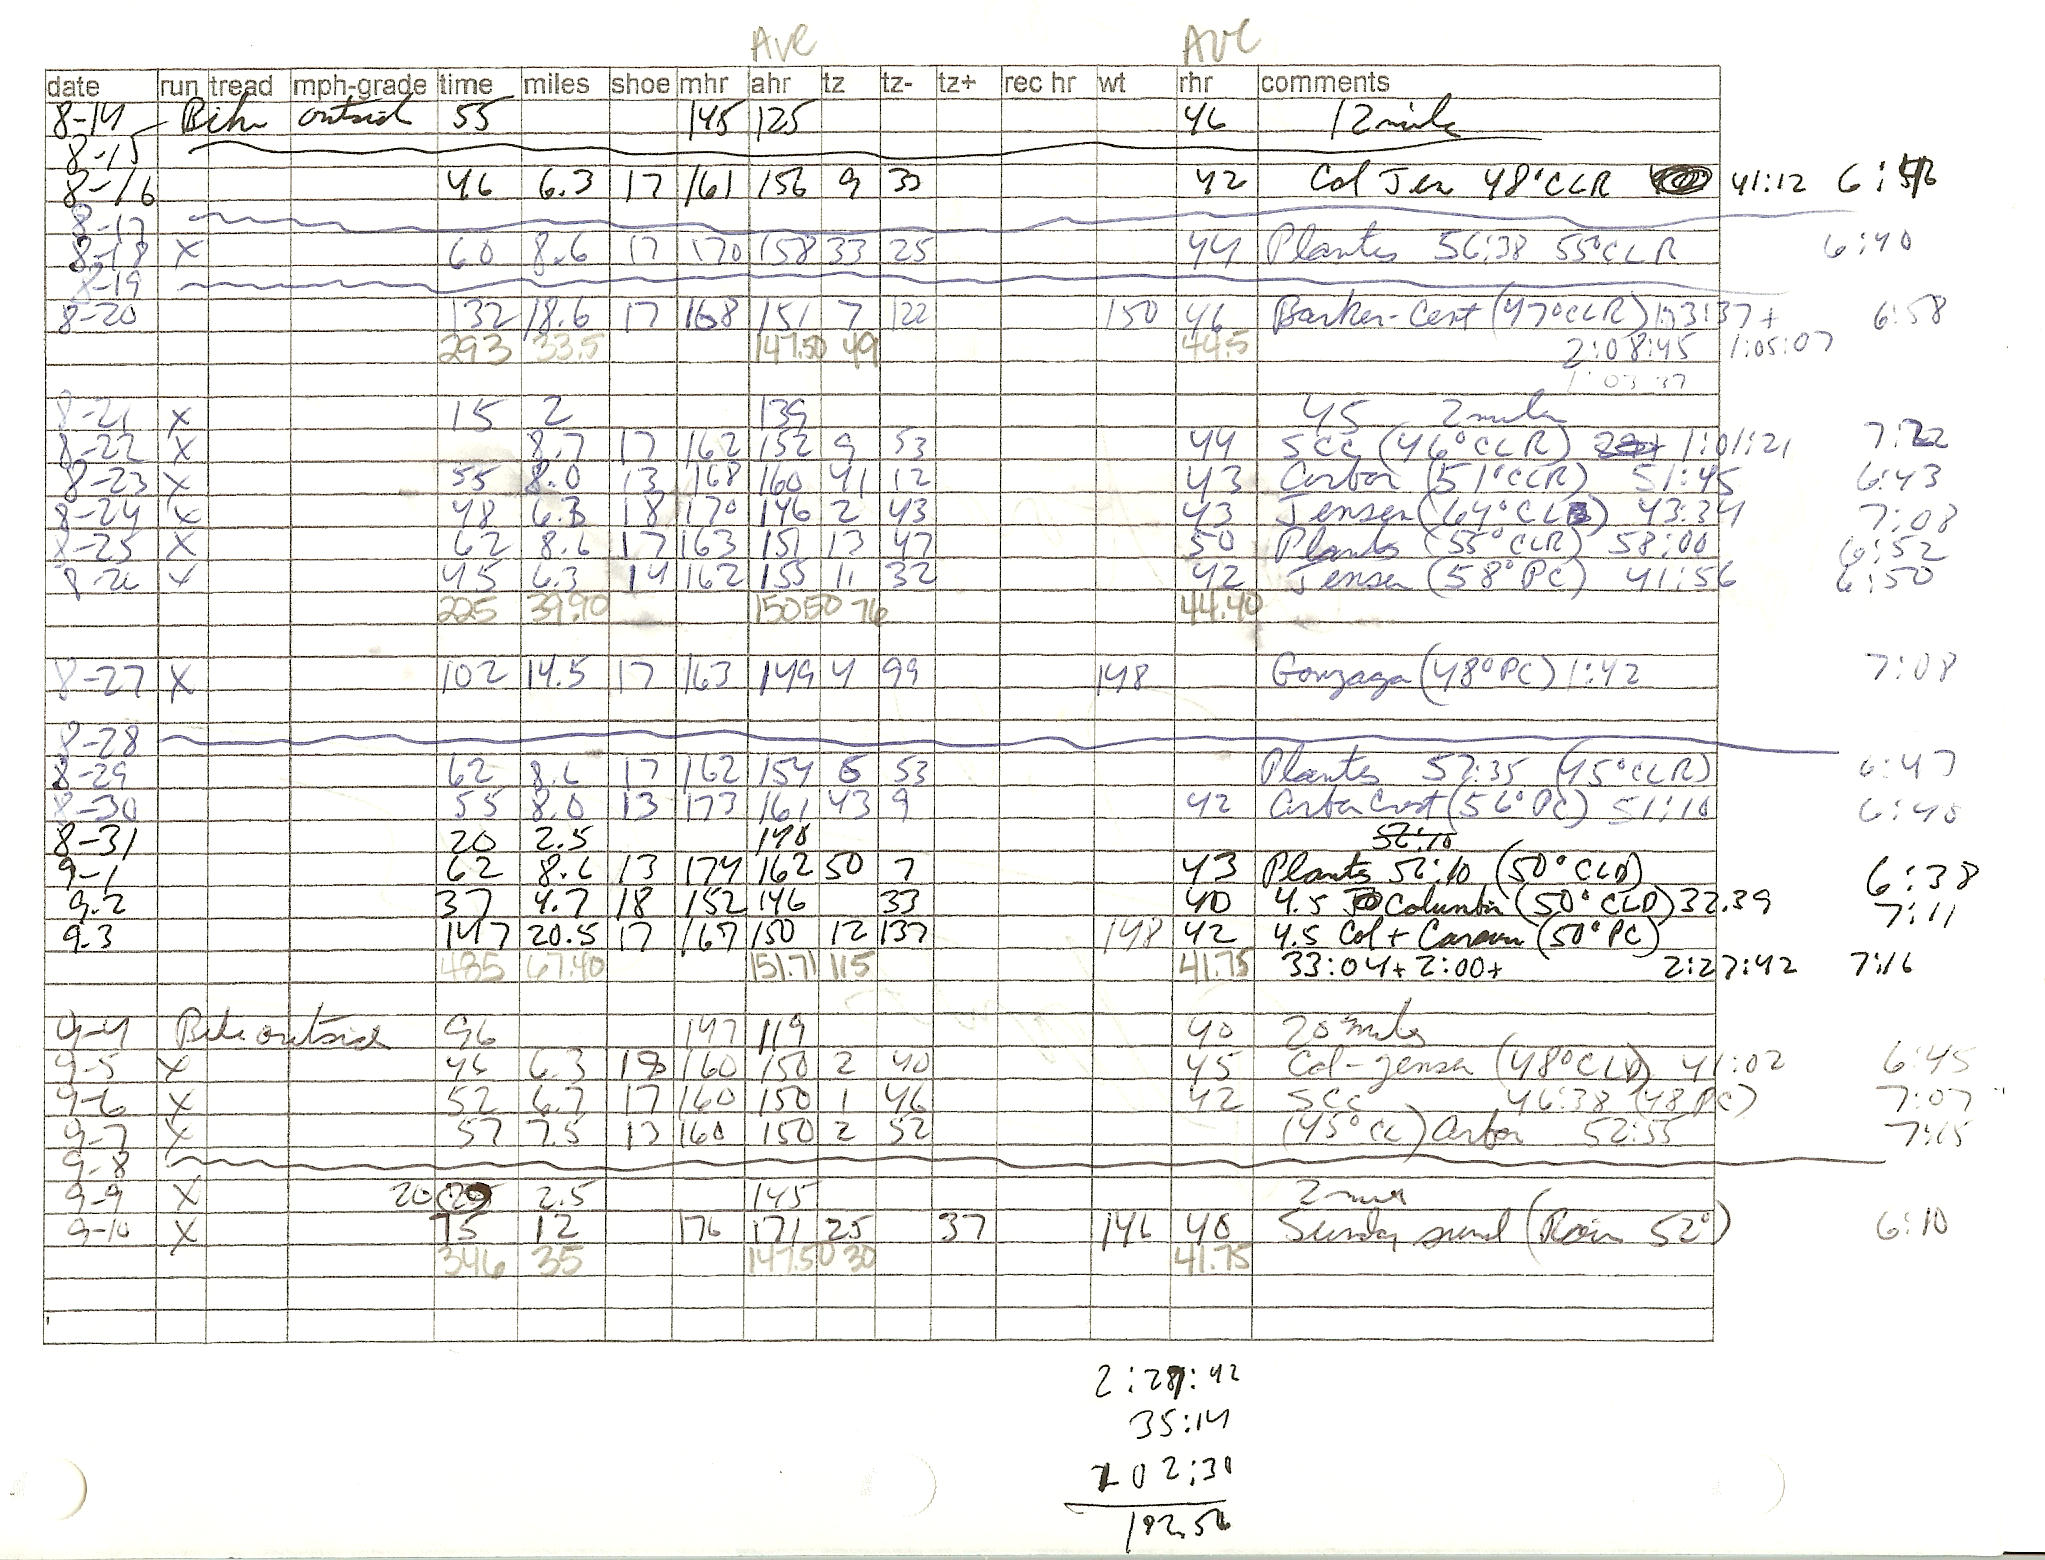 Ave Ave
date run tread mph-grade time miles shoe mhr ahr tz tz- tz+ rec hr wt rhr comments
8-14 Bike outside 55 145 125 46 12 mile
8-15
8-16 46 6.3 17 161 156 9 33 42 Col Jen 48°CLR 41:12 6:
8-17
8-18 X 60 8.6 17 170 158 33 25 44 Plantes 56:38 55°CLR 6:40
8-19
8-20 132 18.6 17 168 151 7 122 150 46 Barker-Cent (47°CLR) 1:03:37+ 6:58
293 33.5 147.50 49 44.5 2:08:45 1:05:07
1:03 37
8-21 X 15 2 139 45 2 mile
8-22 X 8.7 17 162 152 9 53 44 SCC (46°CLR) 1:01:21 7:22
8-23 X 55 8.0 13 168 160 41 12 43 Arbor (51°CLR) 51:45 6:43
8-24 X 48 6.3 18 170 146 2 43 43 Jensen (64°CLR) 43:34 7:08
8-25 X 62 8.6 17 163 151 13 47 50 Plantes (55°CLR) 58:00 6:52
8-26 X 45 6.3 14 162 155 11 32 42 Jensen (58°PC) 41:56 6:50
225 39.90 150.50 76 44.40
8-27 X 102 14.5 17 163 149 4 99 148 Gonzaga (48°PC) 1:42 7:08
8-28
8-29 62 8.6 17 162 154 6 53 Plantes 57:35 (45°CLR) 6:47
8-30 55 8.0 13 173 161 43 9 42 Arbor Crest (56°PC) 51:10 6:40
8-31 20 2.5 140 52:10
9-1 62 8.6 13 174 162 50 7 43 Plantes 52:10 (50°CLD) 6:38
9-2 37 4.7 18 152 146 33 40 4.5 Columbia (50°CLD) 32.39 7:11
9-3 147 20.5 17 167 150 12 137 148 42 4.5 Col + Carson (50°PC)
485 67.40 151.71 115 41.75 33:04+2:00+ 2:27:42 7:16
9-4 Bike outside 96 147 119 40 20 miles
9-5 X 46 6.3 18 160 150 2 40 45 Col-Jensen (48°CLD) 41:02 6:45
9-6 X 52 6.7 17 160 150 1 46 42 SCC 46:38 (48PC) 7:07
9-7 X 57 7.5 13 160 150 2 52 (45°CL) Arbor 52:55 7:15
9-8
9-9 X 20 2.5 145 2 mile
9-10 X 75 12 176 171 25 37 146 40 Sunday (Rain 52°) 6:10
346 35 147.50 30 41.75
2:27:42
35:14
102:30
182.56